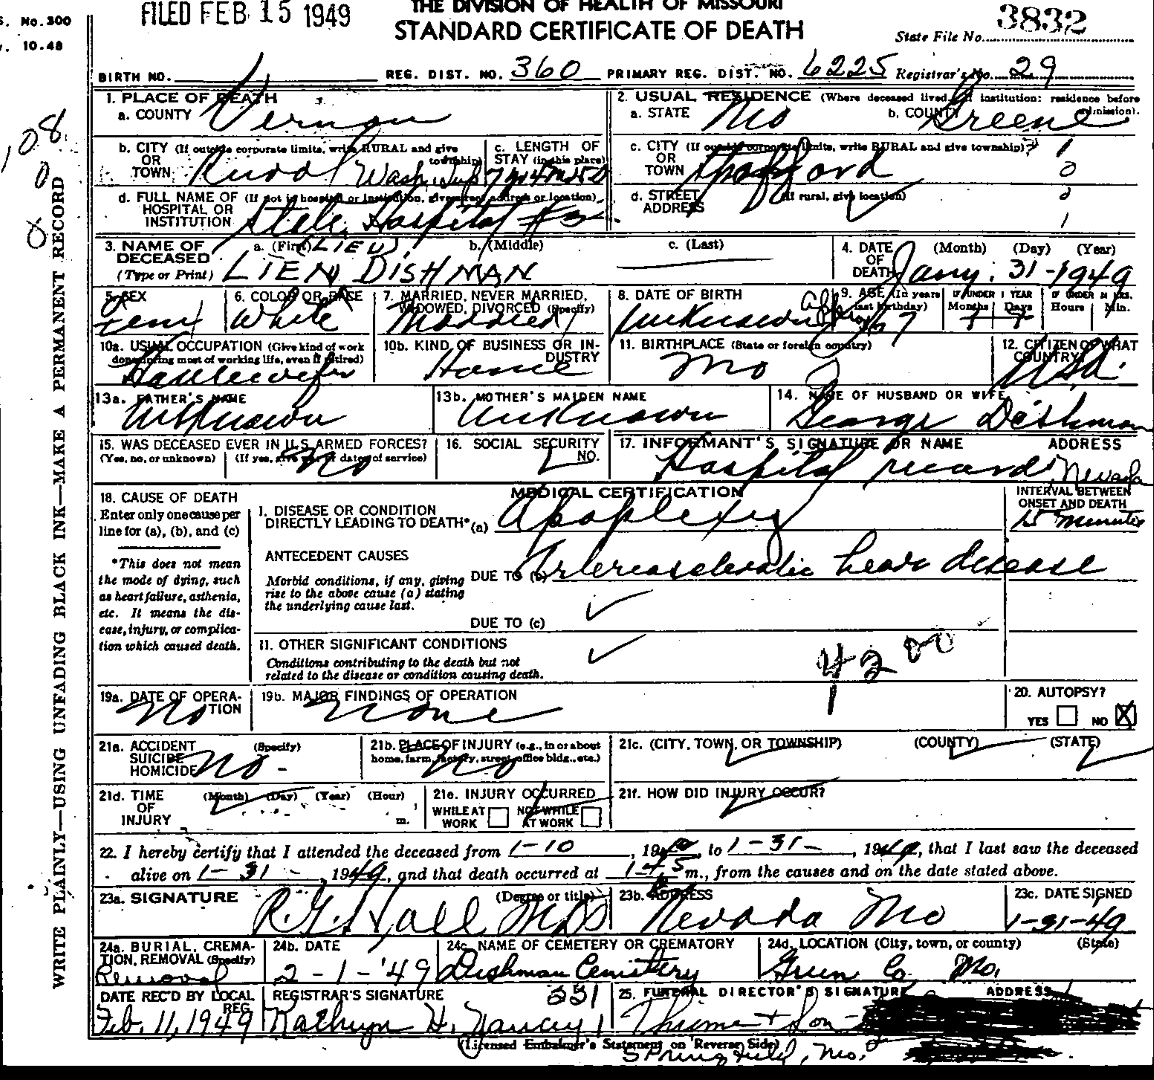 S. No. 300
. 10.48
FILED FEB 15 1949
THE DIVISION OF HEALTH OF MISSOURI
STANDARD CERTIFICATE OF DEATH
3832
State File No.
BIRTH NO. REG. DIST. NO. 360 PRIMARY REG. DIST. NO. 6225 Registrar's No. 29
WRITE PLAINLY—USING UNFADING BLACK INK—MAKE A PERMANENT RECORD
1. PLACE OF DEATH
a. COUNTY Vernon
2. USUAL RESIDENCE (Where deceased lived. If institution: residence before admission).
a. STATE Mo b. COUNTY Greene
b. CITY (If outside corporate limits, write RURAL and give township) OR TOWN Rural Wash. Twp
c. LENGTH OF STAY (in this place)
c. CITY (If outside corporate limits, write RURAL and give township) OR TOWN
d. FULL NAME OF (If not in hospital or institution, give street address or location) HOSPITAL OR INSTITUTION State Hospital #3
d. STREET ADDRESS (If rural, give location)
3. NAME OF DECEASED (Type or Print)
a. (First) b. (Middle) c. (Last)
LIEN DISHMAN
4. DATE OF DEATH (Month) (Day) (Year)
Jany. 31-1949
5. SEX Fem
6. COLOR OR RACE White
7. MARRIED, NEVER MARRIED, WIDOWED, DIVORCED (Specify) Married
8. DATE OF BIRTH Unknown
9. AGE (In years last birthday) 67
IF UNDER 1 YEAR Months Days
IF UNDER 24 HRS. Hours Min.
10a. USUAL OCCUPATION (Give kind of work done during most of working life, even if retired) Housewife
10b. KIND OF BUSINESS OR INDUSTRY Home
11. BIRTHPLACE (State or foreign country) Mo
12. CITIZEN OF WHAT COUNTRY? USA
13a. FATHER'S NAME Unknown
13b. MOTHER'S MAIDEN NAME Unknown
14. NAME OF HUSBAND OR WIFE George Dishman
15. WAS DECEASED EVER IN U.S. ARMED FORCES? (Yes, no, or unknown) (If yes, give war or dates of service) No
16. SOCIAL SECURITY NO.
17. INFORMANT'S SIGNATURE OR NAME ADDRESS
Hospital records, Nevada
18. CAUSE OF DEATH
Enter only one cause per line for (a), (b), and (c)
*This does not mean the mode of dying, such as heart failure, asthenia, etc. It means the disease, injury, or complication which caused death.
MEDICAL CERTIFICATION
INTERVAL BETWEEN ONSET AND DEATH
I. DISEASE OR CONDITION DIRECTLY LEADING TO DEATH* (a) Apoplexy 15 minutes
ANTECEDENT CAUSES
Morbid conditions, if any, giving rise to the above cause (a) stating the underlying cause last.
DUE TO (b) Arteriosclerotic heart disease
DUE TO (c)
II. OTHER SIGNIFICANT CONDITIONS
Conditions contributing to the death but not related to the disease or condition causing death.
4200
19a. DATE OF OPERATION No
19b. MAJOR FINDINGS OF OPERATION none
20. AUTOPSY?
YES NO X
21a. ACCIDENT SUICIDE HOMICIDE (Specify) No-
21b. PLACE OF INJURY (e.g., in or about home, farm, factory, street, office bldg., etc.) No
21c. (CITY, TOWN, OR TOWNSHIP) (COUNTY) (STATE)
21d. TIME OF INJURY (Month) (Day) (Year) (Hour) m.
21e. INJURY OCCURRED
WHILE AT WORK NOT WHILE AT WORK
21f. HOW DID INJURY OCCUR?
22. I hereby certify that I attended the deceased from 1-10, 1949, to 1-31-, 1949, that I last saw the deceased
alive on 1-31-, 1949, and that death occurred at m., from the causes and on the date stated above.
23a. SIGNATURE (Degree or title) R.G. Hall MD
23b. ADDRESS Nevada Mo
23c. DATE SIGNED 1-31-49
24a. BURIAL, CREMATION, REMOVAL (Specify) Removal
24b. DATE 2-1-'49
24c. NAME OF CEMETERY OR CREMATORY Dishman Cemetery
24d. LOCATION (City, town, or county) (State) Green Co. Mo.
DATE REC'D BY LOCAL REG. Feb. 11, 1949
REGISTRAR'S SIGNATURE Kathryn H. Yancey 551
25. FUNERAL DIRECTOR'S SIGNATURE ADDRESS
Thieme & Son-
(Licensed Embalmer's Statement on Reverse Side)
Springfield, Mo.